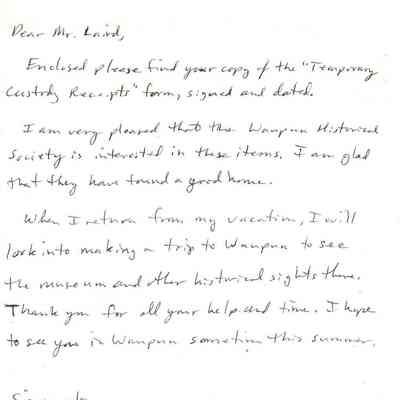 Dear Mr. Laird,
Enclosed please find your copy of the "Temporary
Custody Receipts" form, signed and dated.
I am very pleased that the Waupun Historical
Society is interested in these items. I am glad
that they have found a good home.
When I return from my vacation, I will
look into making a trip to Waupun to see
the museum and other historical sights there.
Thank you for all your help and time. I hope
to see you in Waupun sometime this summer.